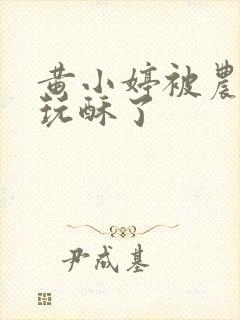 黄小婷被農
玩酥了
尹成基